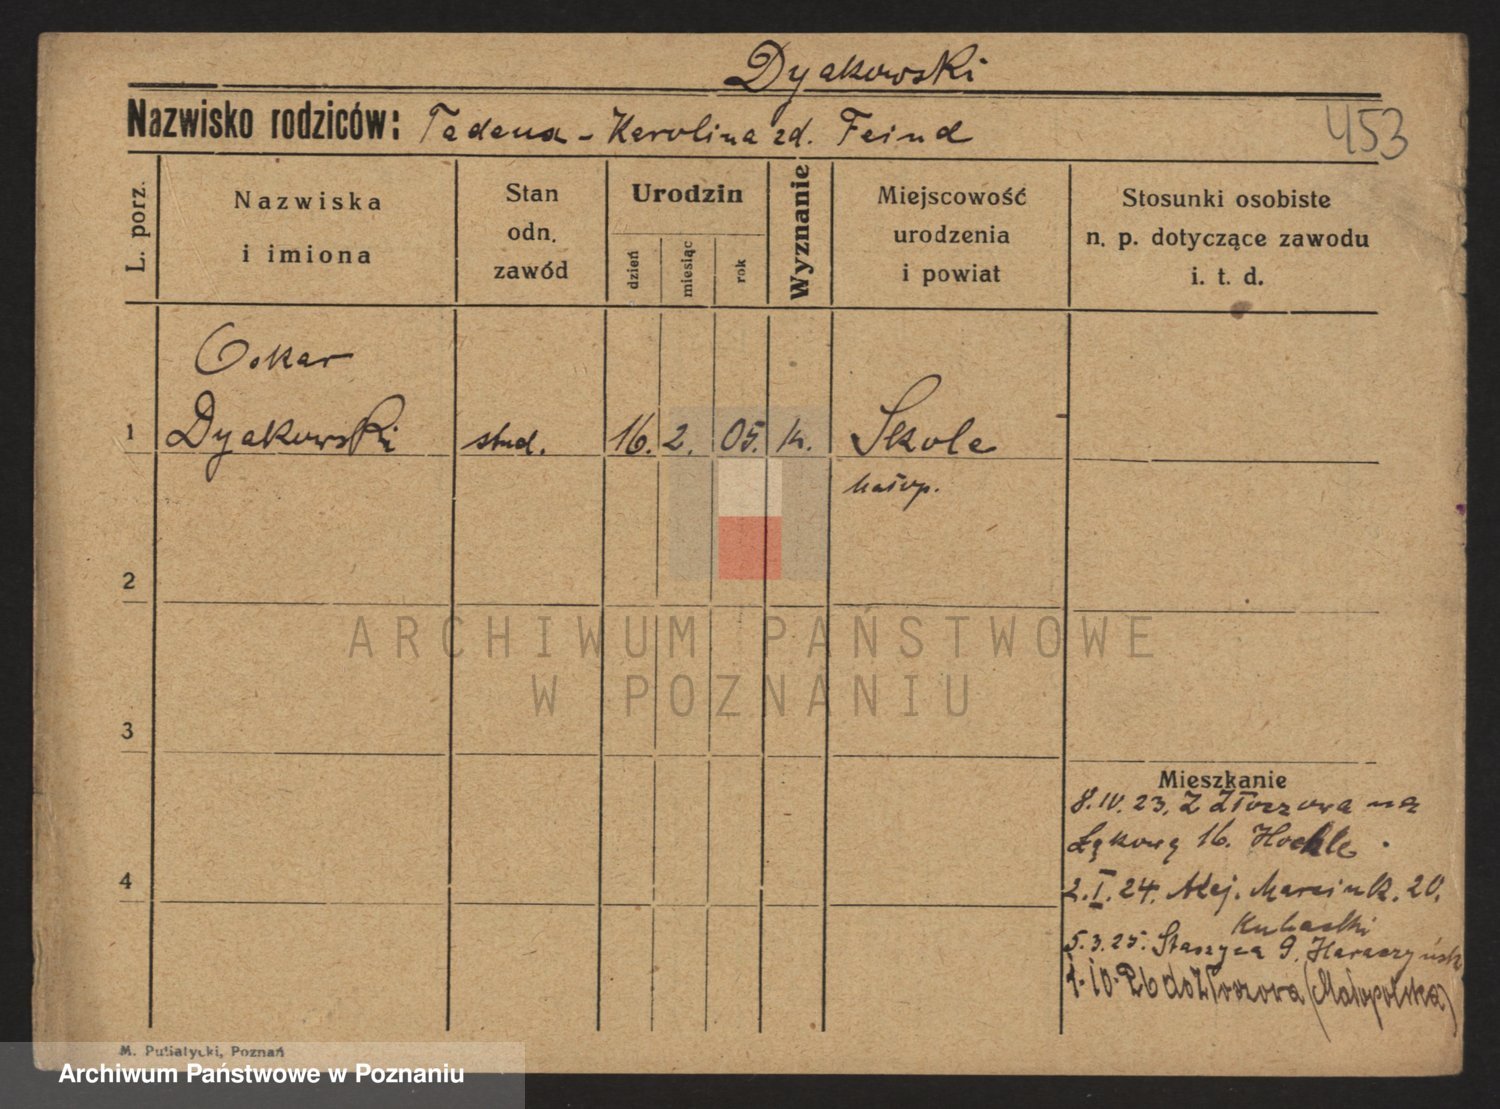 Dyakowski
Nazwisko rodziców: Tadeusz - Karolina zd. Feind
453
L. porz.
Nazwiska
i imiona
Stan
odn.
zawód
Urodzin
dzień
miesiąc
rok
Wyznanie
Miejscowość
urodzenia
i powiat
Stosunki osobiste
n. p. dotyczące zawodu
i. t. d.
Oskar
1 Dyakowski stud. 16. 2. 05. k. Skole
2
ARCHIWUM PAŃSTWOWE
W POZNANIU
3
Mieszkanie
8.IV.23. Z Złoczowa na
Łąkową 16.
4
2.I.24. Alej. Marcink. 20.
5.3.25. Staszyca 9.
1.10.26 do Złoczowa (Małopolska)
M. Putiatycki, Poznań
Archiwum Państwowe w Poznaniu